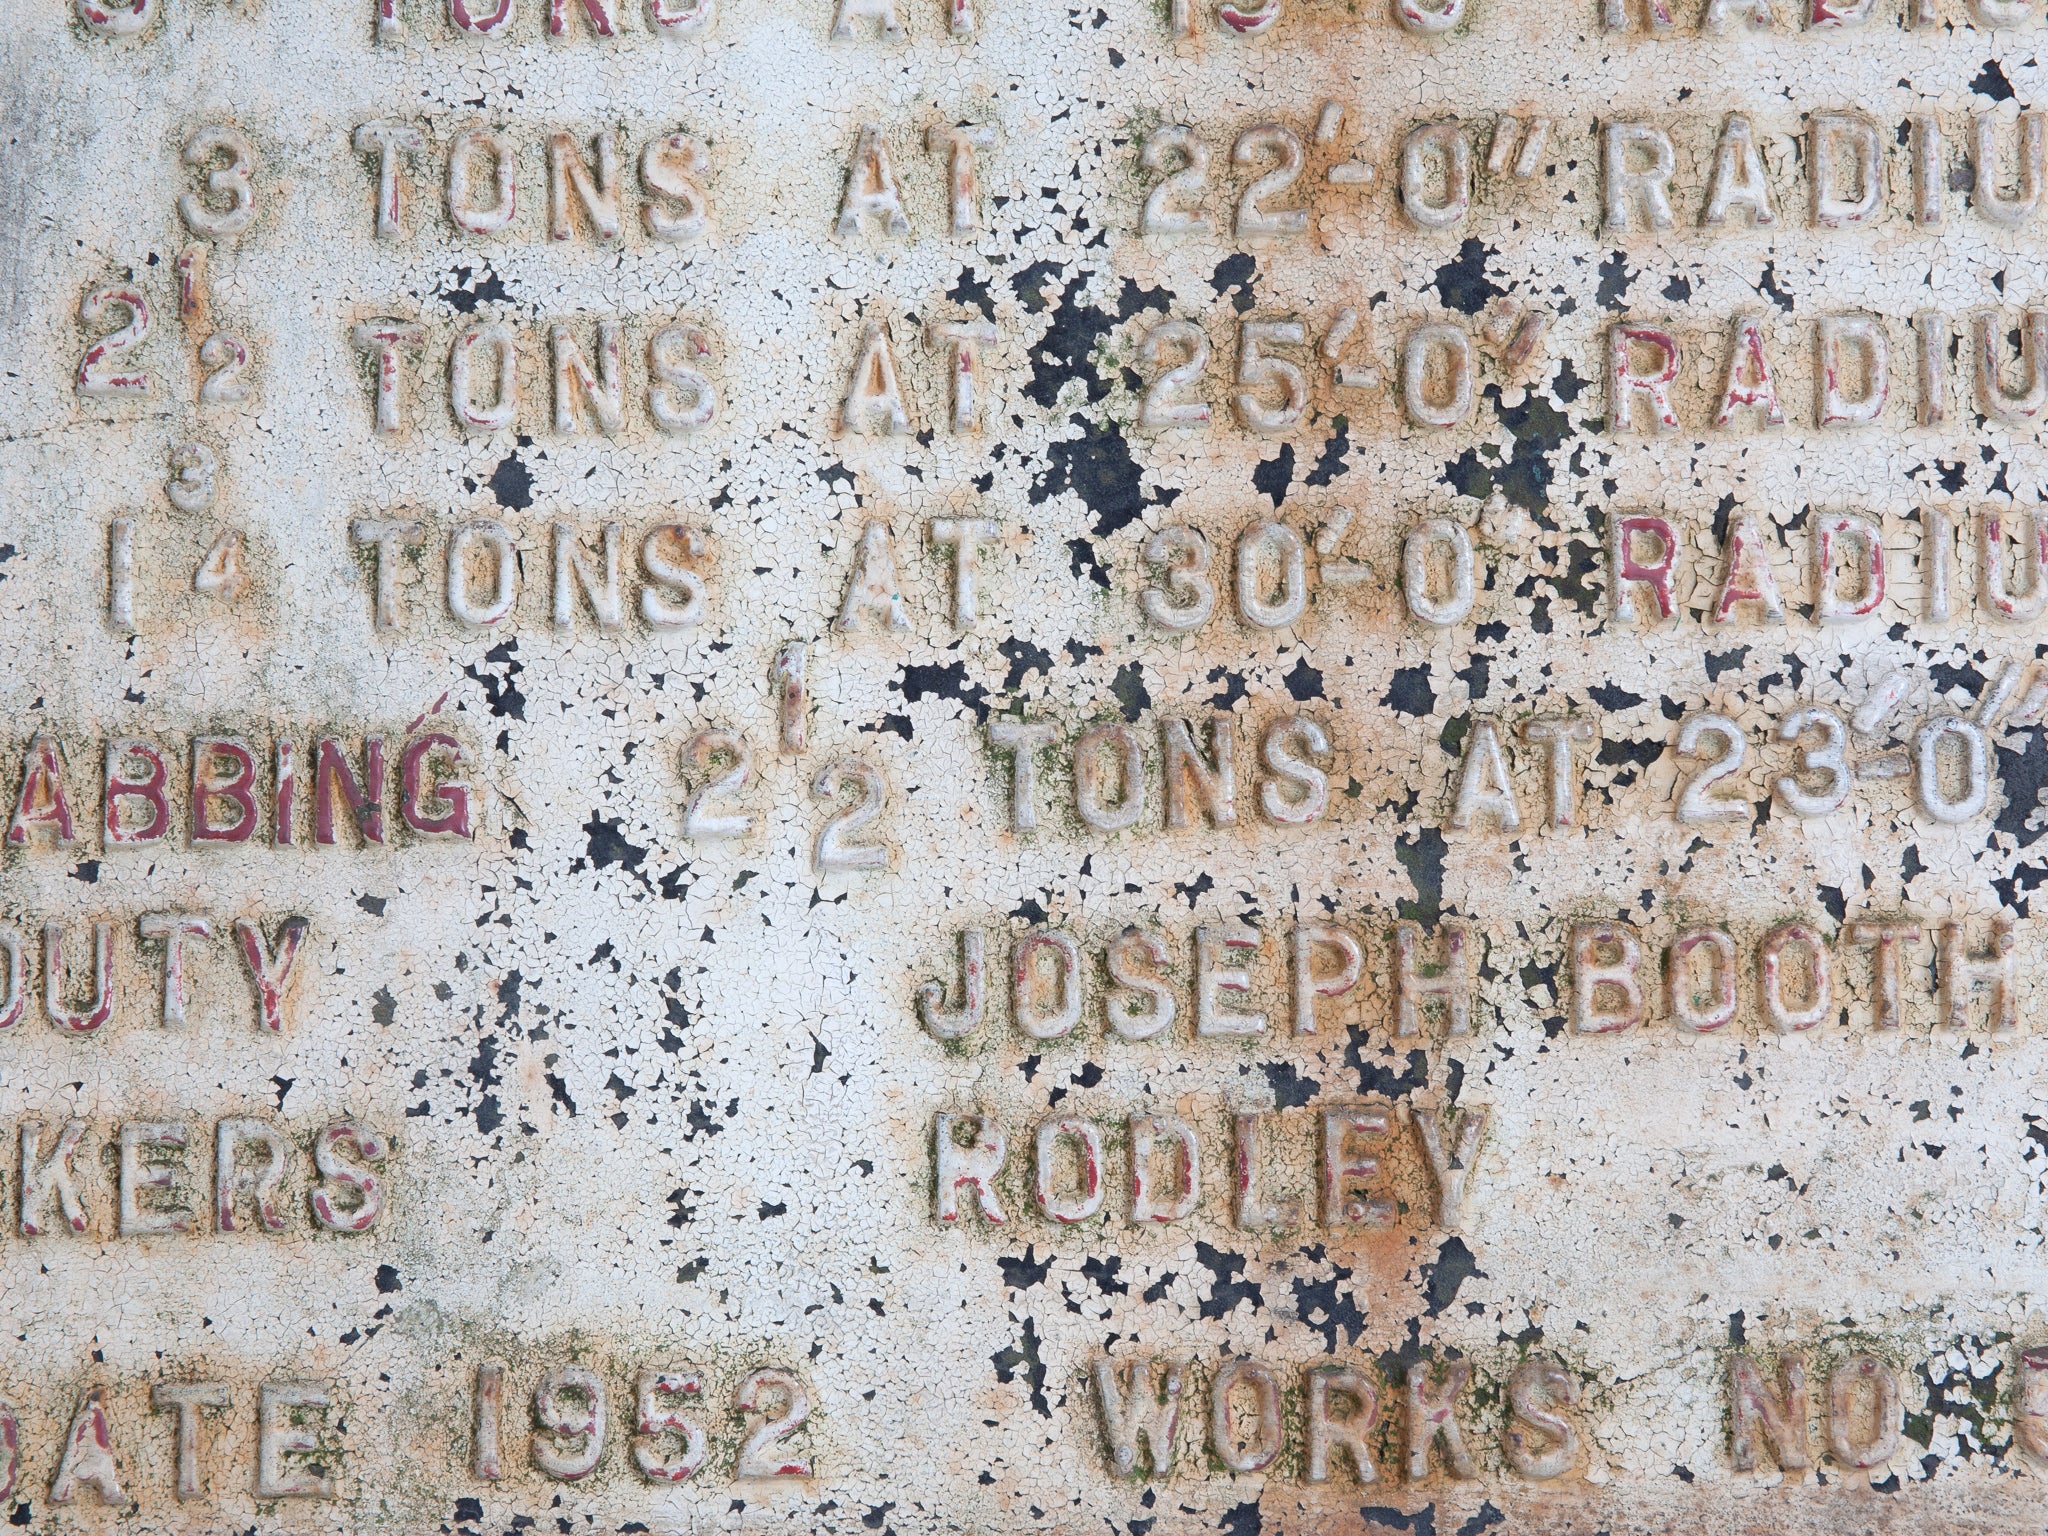 TONS AT
3 TONS AT 22'-0" RADIU
2 1/2 TONS AT 25'-0" RADIU
1 3/4 TONS AT 30'-0" RADIU
ABBING 2 1/2 TONS AT 23'-0"
DUTY JOSEPH BOOTH
KERS RODLEY
DATE 1952 WORKS NO